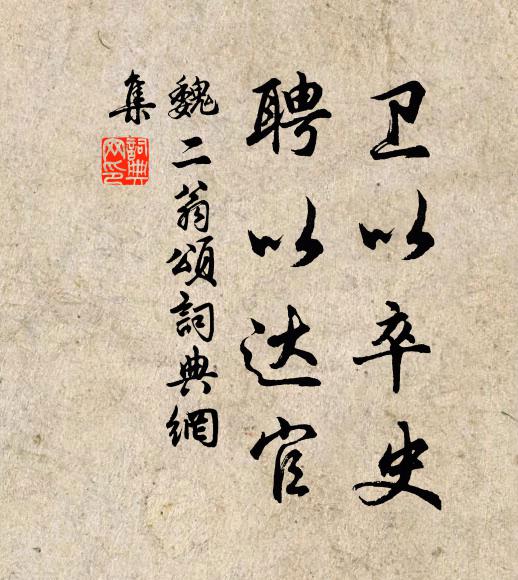 卫以卒史
聘以达官
魏二翁颂詞典網
集
詞典
网印